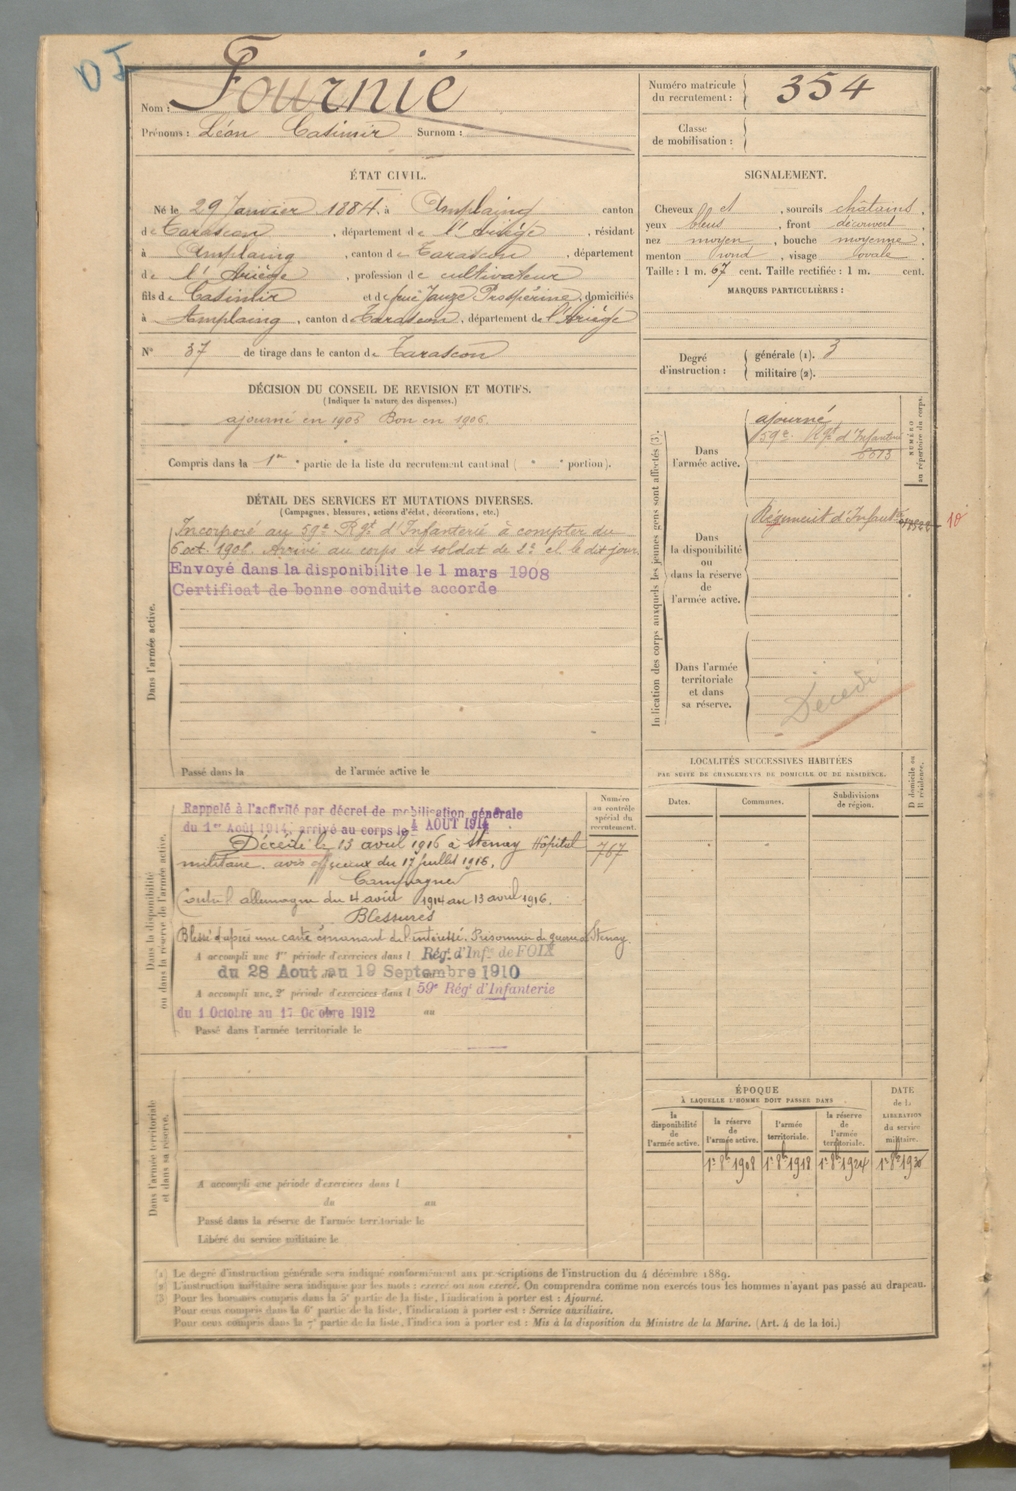 Nom : Fournié
Prénoms : Léon Casimir Surnom :
Numéro matricule du recrutement : 354
Classe de mobilisation :
ÉTAT CIVIL.
Né le 29 Janvier 1884, à Amplaing canton
de Tarascon, département de l'Ariège, résidant
à Amplaing, canton de Tarascon, département
de l'Ariège, profession de cultivateur
fils de Casimir et de Jauze Prospérine, domiciliés
à Amplaing, canton de Tarascon, département de l'Ariège
N° 37 de tirage dans le canton de Tarascon
SIGNALEMENT.
Cheveux et, sourcils châtains,
yeux bleus, front découvert,
nez moyen, bouche moyenne,
menton rond, visage ovale.
Taille : 1 m. 67 cent. Taille rectifiée : 1 m. cent.
MARQUES PARTICULIÈRES :
Degré d'instruction :
générale (1). 3
militaire (2).
DÉCISION DU CONSEIL DE REVISION ET MOTIFS.
(Indiquer la nature des dispenses.)
ajourné en 1905 Bon en 1906.
Compris dans la 1re partie de la liste du recrutement cantonal ( portion).
DÉTAIL DES SERVICES ET MUTATIONS DIVERSES.
(Campagnes, blessures, actions d'éclat, décorations, etc.)
Dans l'armée active.
Incorporé au 59e Rgt d'Infanterie à compter du
6 oct. 1906. Arrivé au corps et soldat de 2e cl le dit jour.
Envoyé dans la disponibilite le 1 mars 1908
Certificat de bonne conduite accorde
Passé dans la de l'armée active le
Indication des corps auxquels les jeunes gens sont affectés (3).
NUMÉRO au répertoire du corps.
Dans l'armée active.
ajourné
59e Rgt d'Infanterie
Dans la disponibilité ou dans la réserve de l'armée active.
Régiment d'Infanterie
10
Dans l'armée territoriale et dans sa réserve.
Décédé
LOCALITÉS SUCCESSIVES HABITÉES
PAR SUITE DE CHANGEMENTS DE DOMICILE OU DE RÉSIDENCE.
Dates. Communes. Subdivisions de région. D domicile ou R résidence.
Dans la disponibilité ou dans la réserve de l'armée active.
Numéro au contrôle spécial du recrutement.
767
Rappelé à l'activité par décret de mobilisation générale
du 1er Août 1914, arrivé au corps le 4 AOUT 1914
Décédé le 13 avril 1916 à Stenay Hôpital
militaire. avis officieux du 17 juillet 1916.
Campagnes
Contre l'allemagne du 4 août 1914 au 13 avril 1916.
Blessures
Blessé d'après une carte émanant de l'intéressé. Prisonnier de guerre à Stenay.
A accompli une 1re période d'exercices dans l Rég. d'Infie de FOIX
du 28 Aout au 19 Septembre 1910
A accompli une 2e période d'exercices dans l 59e Rég d'Infanterie
du 1 Octobre au 17 Octobre 1912 au
Passé dans l'armée territoriale le
Dans l'armée territoriale et dans sa réserve.
A accompli une période d'exercices dans l
du au
Passé dans la réserve de l'armée territoriale le
Libéré du service militaire le
ÉPOQUE
À LAQUELLE L'HOMME DOIT PASSER DANS
la disponibilité de l'armée active.
la réserve de l'armée active.
l'armée territoriale.
la réserve de l'armée territoriale.
DATE de la LIBÉRATION du service militaire.
1er 8bre 1908 1er 8bre 1918 1er 8bre 1924 1er 8bre 1930
(1) Le degré d'instruction générale sera indiqué conformément aux prescriptions de l'instruction du 4 décembre 1889.
(2) L'instruction militaire sera indiquée par les mots : exercé ou non exercé. On comprendra comme non exercés tous les hommes n'ayant pas passé au drapeau.
(3) Pour les hommes compris dans la 5e partie de la liste, l'indication à porter est : Ajourné.
Pour ceux compris dans la 6e partie de la liste, l'indication à porter est : Service auxiliaire.
Pour ceux compris dans la 7e partie de la liste, l'indication à porter est : Mis à la disposition du Ministre de la Marine. (Art. 4 de la loi.)